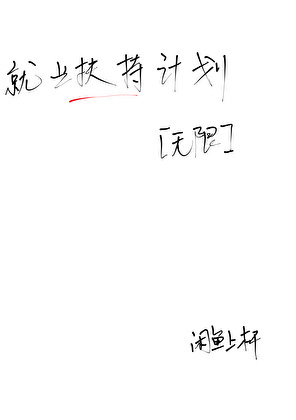 就业扶持计划
[无限]
闲鱼上杆